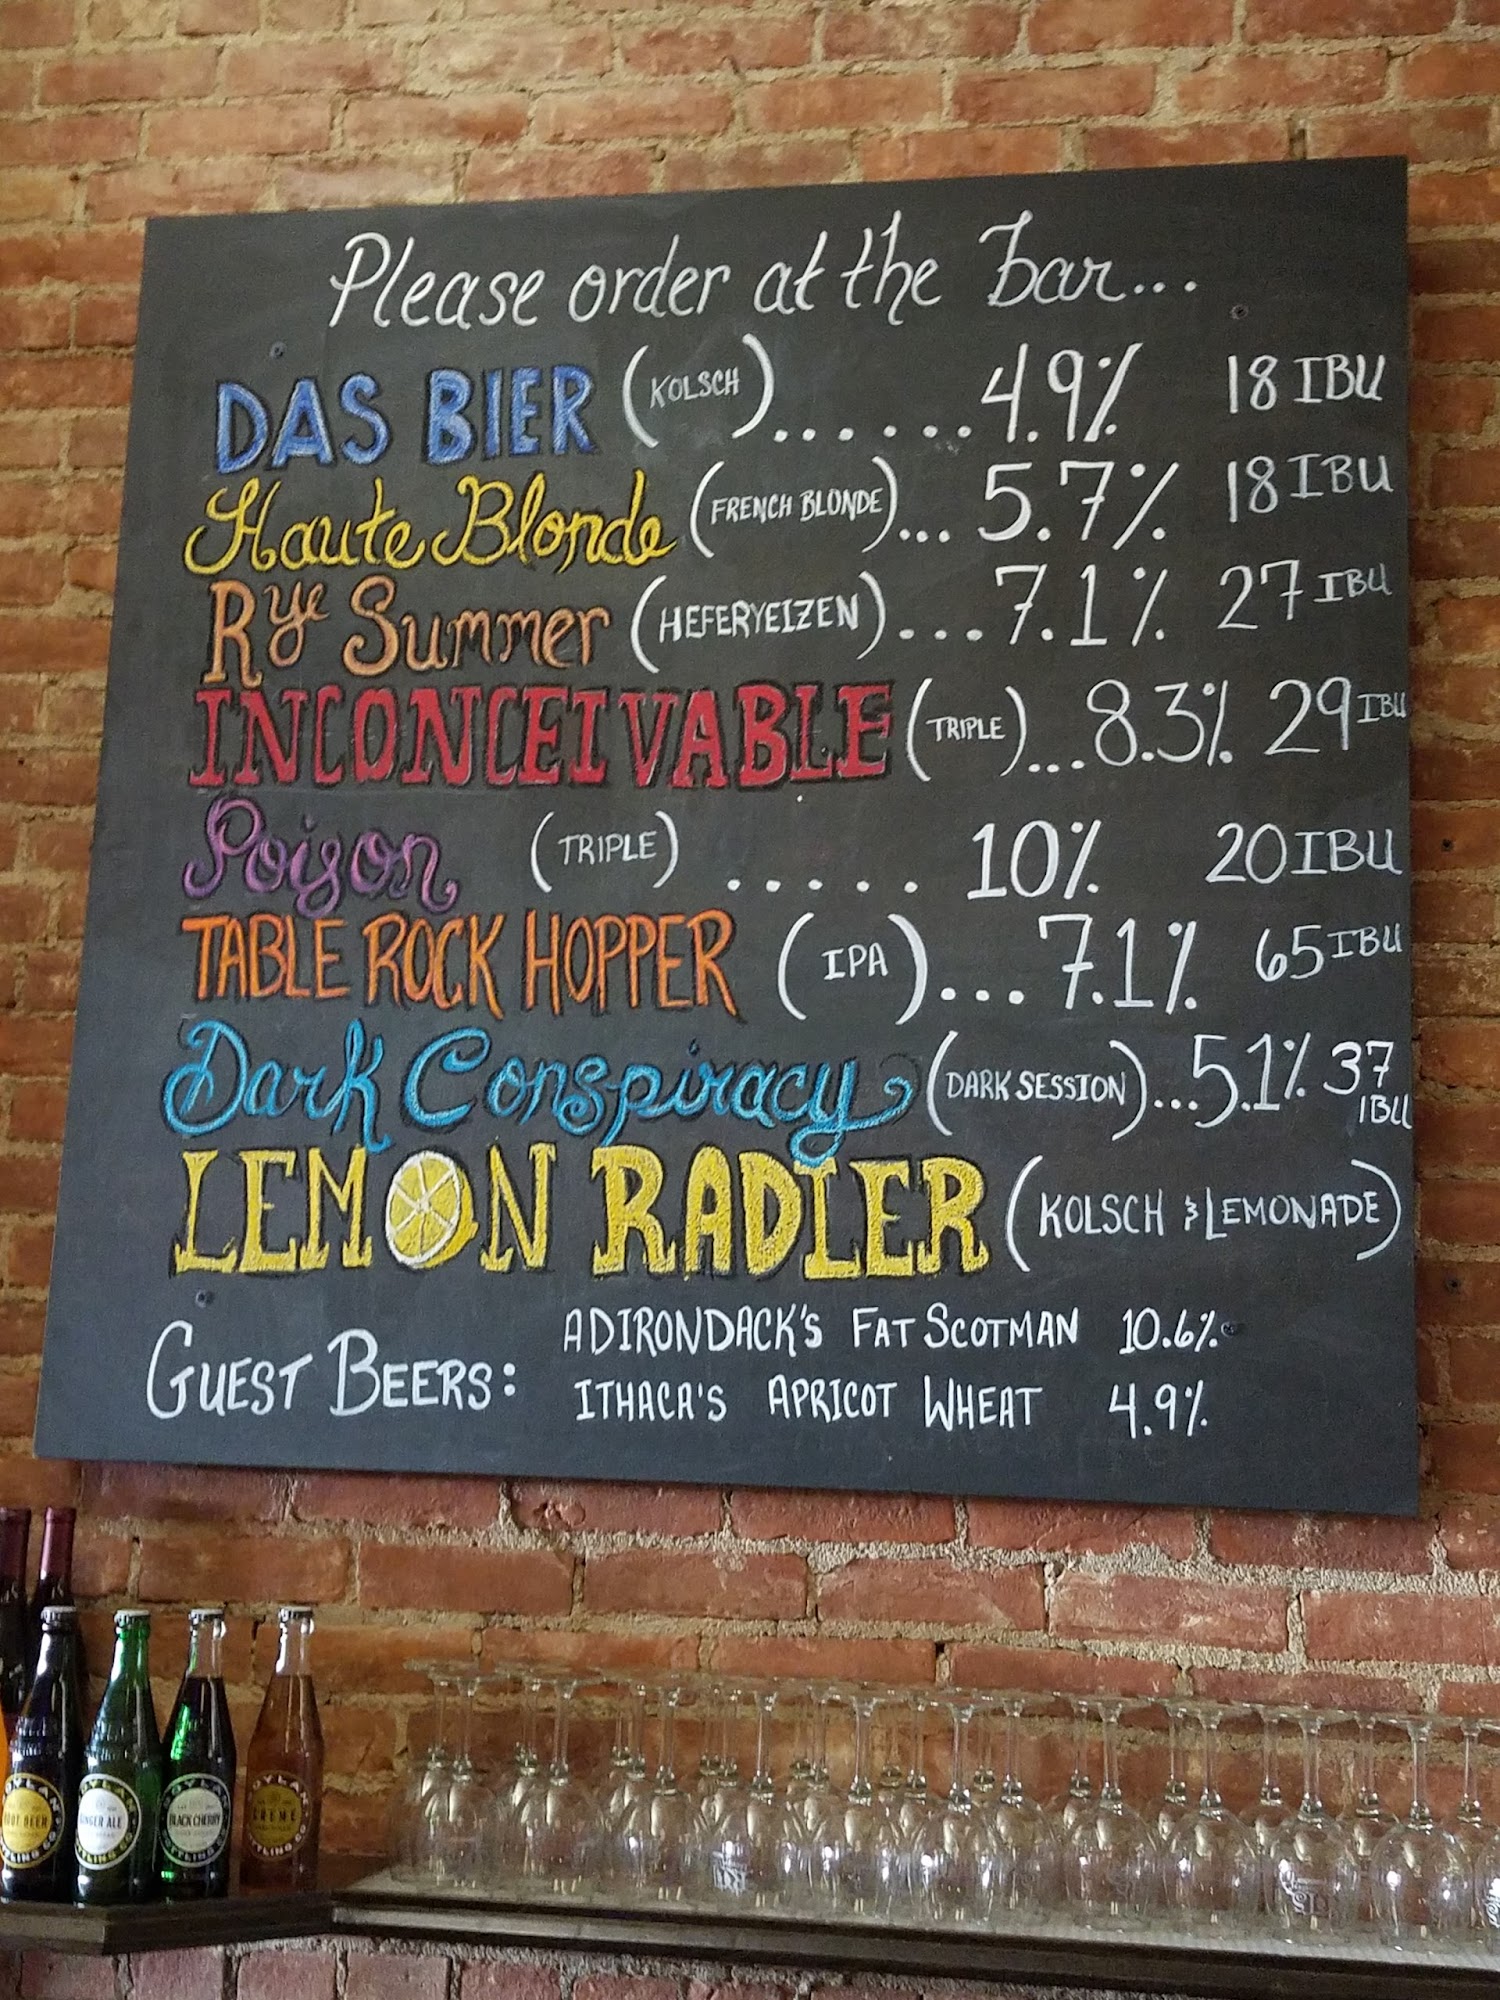 Please order at the bar...
DAS BIER (KOLSCH)......4.9% 18 IBU
Haute Blonde (FRENCH BLONDE)...5.7% 18 IBU
Rye Summer (HEFERYEIZEN)....7.1% 27 IBU
INCONCEIVABLE (TRIPLE)...8.3% 29 IBU
Poison (TRIPLE) ..... 10% 20 IBU
TABLE ROCK HOPPER (IPA)...7.1% 65 IBU
Dark Conspiracy (DARK SESSION)...5.1% 37 IBU
LEMON RADLER (KOLSCH & LEMONADE)
GUEST BEERS: ADIRONDACK'S FAT SCOTMAN 10.6%
ITHACA'S APRICOT WHEAT 4.9%
ROOT BEER
BOYLAN
GINGER ALE
BOTTLING CO
BOYLAN
BLACK CHERRY
BOTTLING CO
BOYLAN
CREME
BOTTLING CO